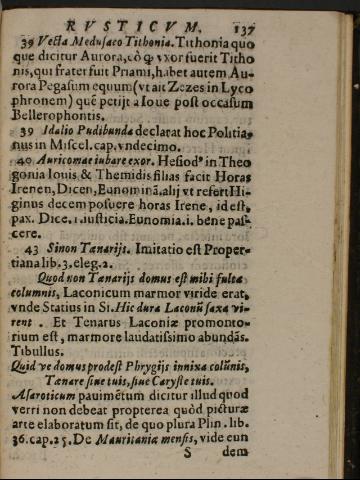 RVSTICVM. 137
39 Vecta Medusaeo Tithonia. Tithonia quo
que dicitur Aurora, eò ꝙ vxor fuerit Titho
nis, qui frater fuit Priami, habet autem Au-
rora Pegasum equum (vt ait Zezes in Lyco
phronem) quẽ petijt a Ioue post occasum
Bellerophontis.
39 Idalio Pudibunda declarat hoc Politia-
nus in Miscel. cap. vndecimo.
40 Auricomae iubare exor. Hesiodꝰ in Theo
gonia Iouis & Themidis filias facit Horas
Irenen, Dicen, Eunominã. alij vt refert Hi-
ginus decem posuere horas Irene, id est,
pax. Dice. i. iusticia. Eunomia. i. bene pas-
cere.
43 Sinon Tænarijs. Imitatio est Proper-
tiana lib. 3. eleg. 2.
Quod non Tænarijs domus est mihi fulta
columnis, Laconicum marmor viride erat,
vnde Statius in Si. Hic dura Laconũ saxa vi-
rent. Et Tenarus Laconiæ promonto-
rium est, marmore laudatissimo abundãs.
Tibullus.
Quid ve domus prodest Phrygijs innixa colũnis,
Tænare siue tuis, siue Caryste tuis.
Asaroticum pauimẽtum dicitur illud quod
verri non debeat propterea quòd picturæ
arte elaboratum sit, de quo plura Plin. lib.
36. cap. 25. De Mauritaniæ mensis, vide eun
S dem